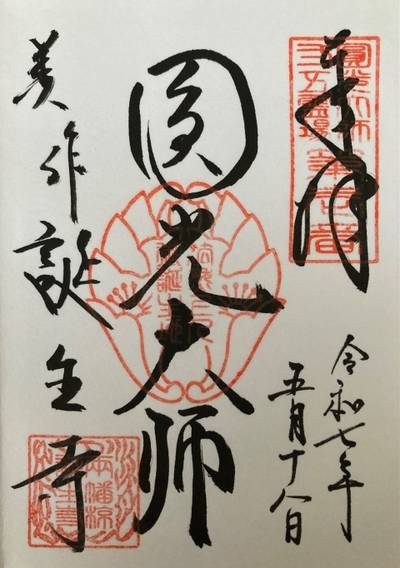 奉拝
令和七年
五月十八日
圓光大師
美作誕生寺